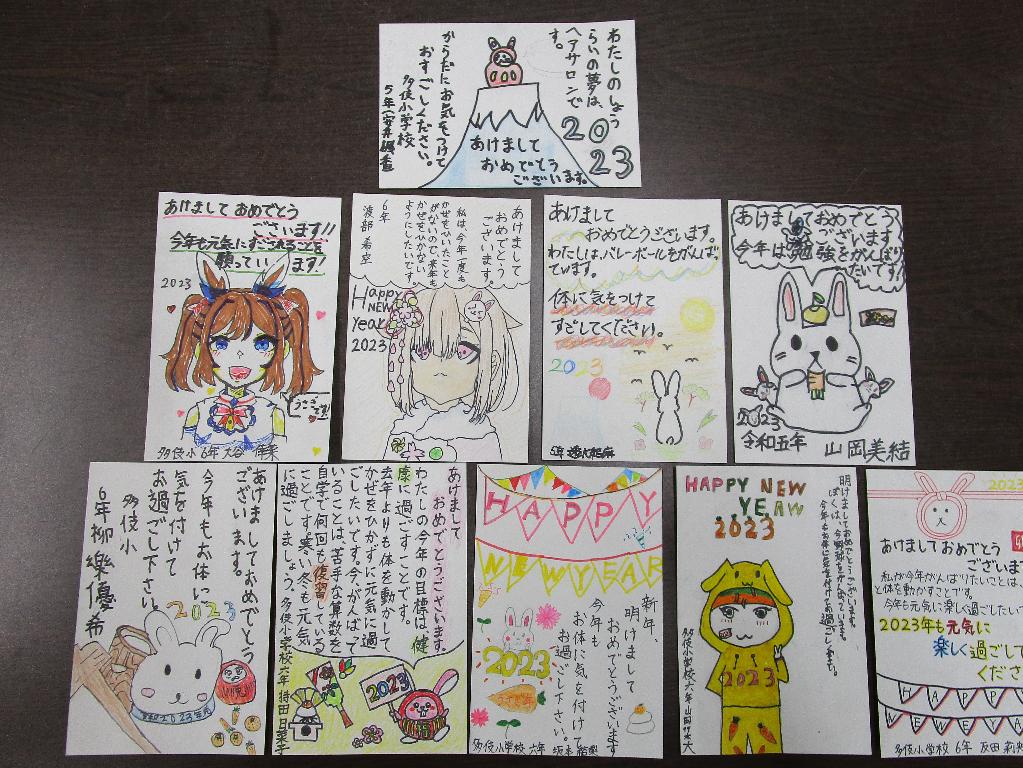 わたしのしょう
らいの夢は、
ヘアサロンで
す。
2023
あけまして
おめでとう
ございます。
からだにお気をつけて
おすごしください。
多伎小学校
5年
あけまして おめでとう
ございます!!
今年も元気に
願っています!
2023
うさぎ
です!
多伎小 6年 大谷
あけまして
おめでとう
ございます。
私は、今年一度も
かぜをひいたこと
がないので、来年も
かぜをひかない
ようにしたいです。
6年
渡部 希空
Happy
NEW
year
2023
あけまして
おめでとうございます。
わたしは、バレーボールをがんばっ
ています。
体に気をつけて
すごしてください。
2023
あけましておめでとう
ございます
今年は勉強をがんばり
たいです!
2023
令和五年 山岡美結
あけましておめでとう
ございます。
今年もお体に
気を付けて
お過ごし下さい。
多伎小
6年柳樂優希
2023
あけまして
おめでとうございます。
わたしの今年の目標は、健
康に過ごすことです。
去年よりも体を動かして
かぜをひかずに元気に過
ごしたいです。今、がんばって
いることは、苦手な算数を
自学で何回も復習している
ことです。寒い冬も元気
に過ごしましょう。
多伎小学校六年 持田日菜子
2023
HAPPY
NEWYEAR
2023
新年、
明けまして
おめでとうございます
今年も
お体に気を付けて
お過ごし下さい。
多伎小学校 六年 坂本
HAPPY NEW
YEAW
2023
明けましておめでとうございます。
2023
多伎小学校六年
2023
あけましておめでとう
ございます
私が今年がんばりたいことは、
と体を動かすことです。
今年も元気に楽しく過ごしたい
2023年も元気に
楽しく過ごして
くださ
HAPPY
NEWYEA
多伎小学校 6年